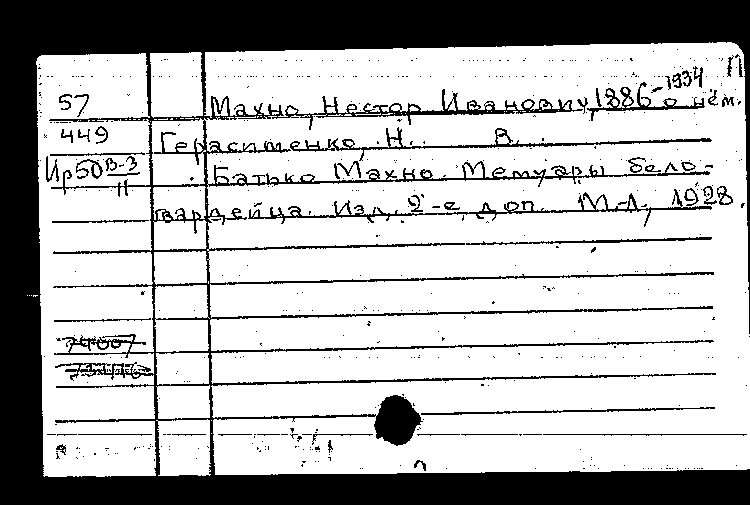 П
57 Махно, Нестор Иванович, 1886-1934 о нём.
449 Герасименко, Н. В.
Батько Махно. Мемуары бело-
гвардейца. Изд. 2-е, доп. М.-Л., 1928.